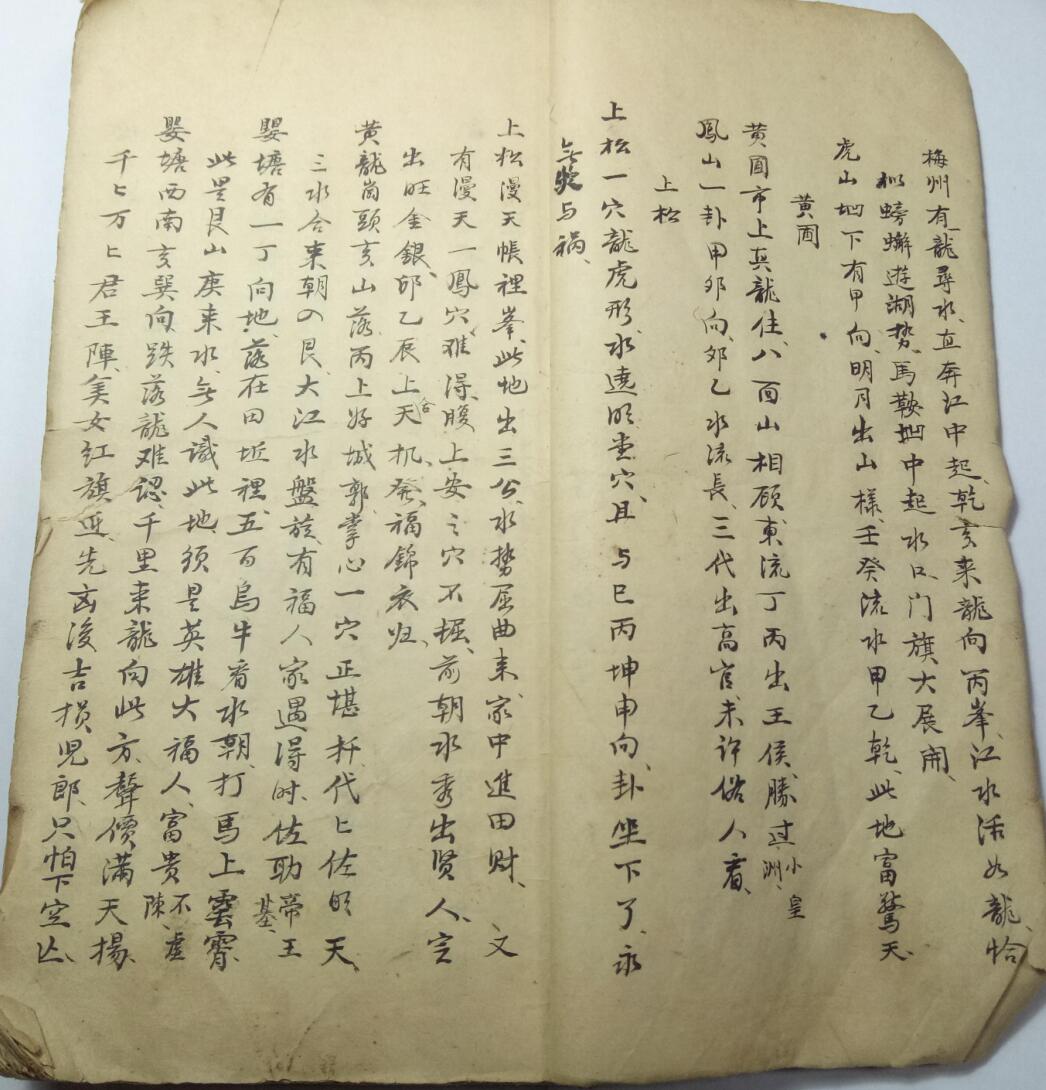 梅州有龍尋水、直奔江中起、乾亥来龍向丙峯、江水活如龍、恰
似螃蠏遊湖势、馬鞍地中起水口、门旗大展開、
虎山地下有甲向、明月出山様、壬癸流水甲乙乾、此地富驚天、
黄圃
黄圃市上真龍住、八面山相顾、東流丁丙出王侯、勝过小皇洲、
鳳山一卦甲卯向、卯乙水流長、三代出高官、未許俗人看、
上松
上松一穴龍虎形、水遶明堂穴、且与巳丙坤申向、卦坐下了、永
無災与祸、
上松漫天帳裡峯、此地出三公、水势屈曲来、家中進田财、又
有漫天一鳳穴、难得腹上安之穴不掘、前朝水秀出贤人、定
出旺金銀、卯乙辰上合天机、発福錦衣归、
黄龍崗頭亥山落、丙上好城郭、掌心一穴正堪扦、代匕佐明天、
三水合来朝の艮、大江水盤旋、有福人家遇得时、佐助帝王基、
嬰塘有一丁向地、落在田坵裡、五百烏牛看水朝、打馬上雲霄、
此是艮山庚来水、無人識此地、须是英雄大福人、富贵不虚陳、
嬰塘西南亥巽向、跌落龍难認、千里来龍向此方、聲價满天揚、
千匕万匕君王陣、美女红旗迎、先凶後吉损児郎、只怕下空亡、